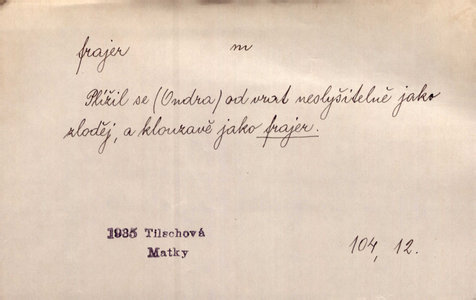 frajer m
Plížil se (Ondra) od vrat neslyšitelně jako
zloděj, a klouzavě jako frajer.
1935 Tilschová
Matky
104, 12.